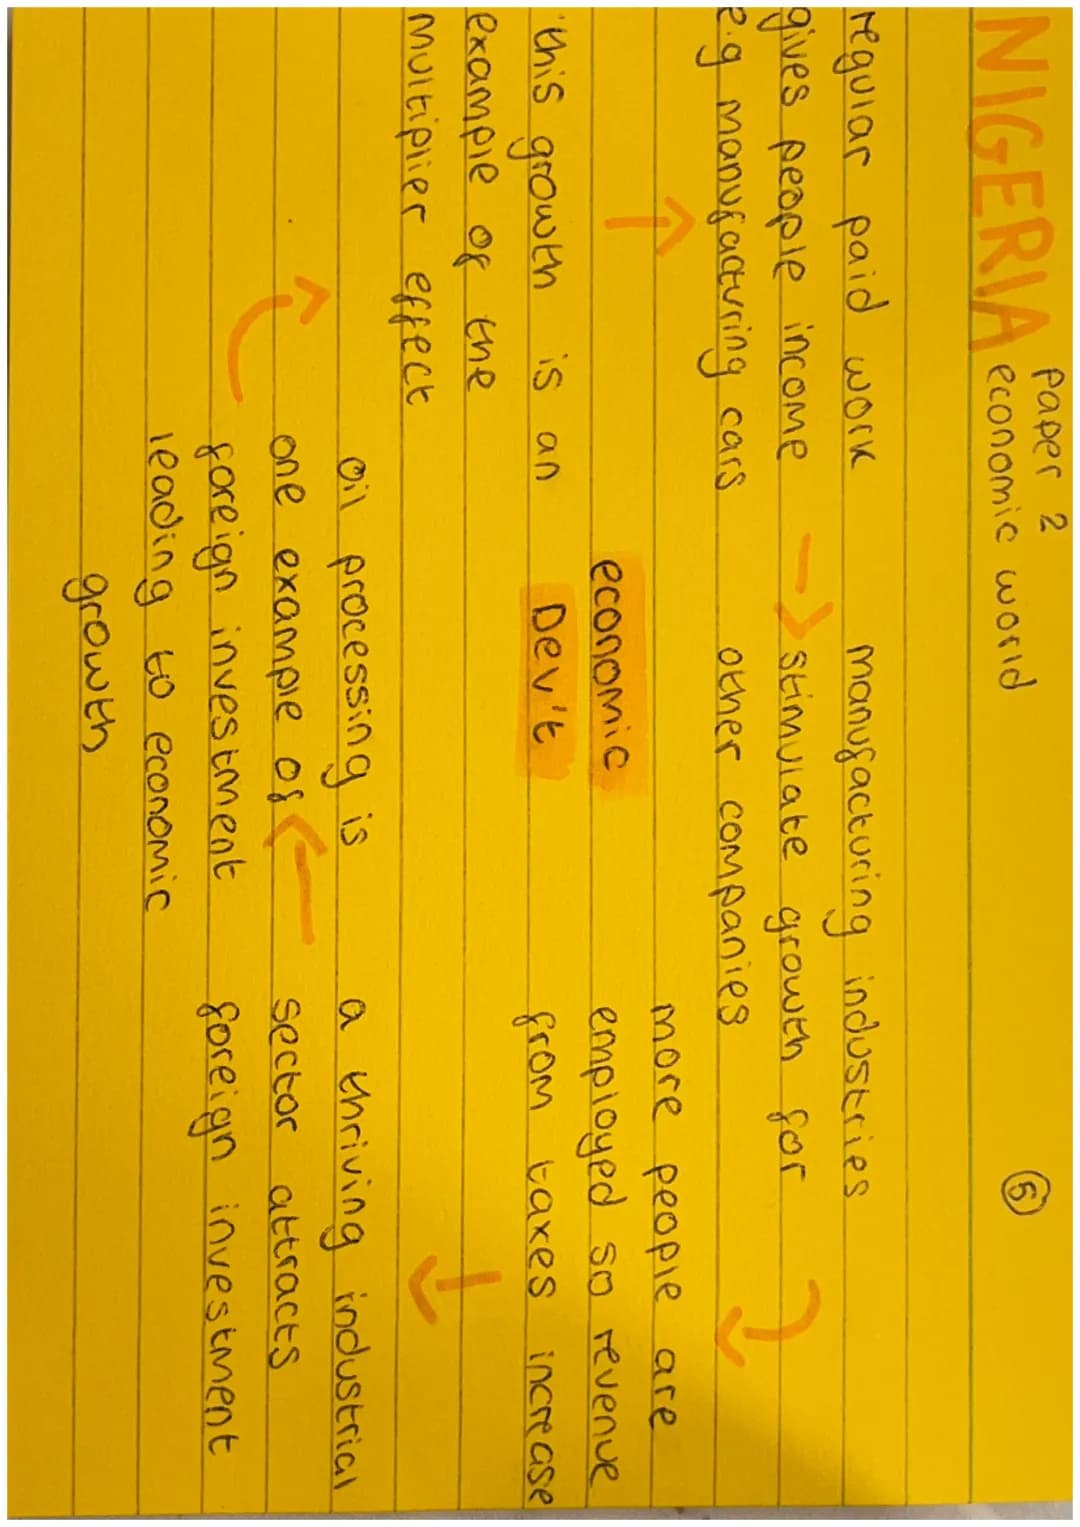 NIGERIA
paper 2
economic world
5
regular paid work
gives people income
e.g manufacturing cars
manufacturing industries
stimulate growth for
other companies
more people are
employed so revenue
from taxes increase
a thriving industrial
sector attracts
foreign investment
oil processing is
one example of
foreign investment
leading to economic
growth
this growth is an
example of the
multiplier effect
economic
Dev't